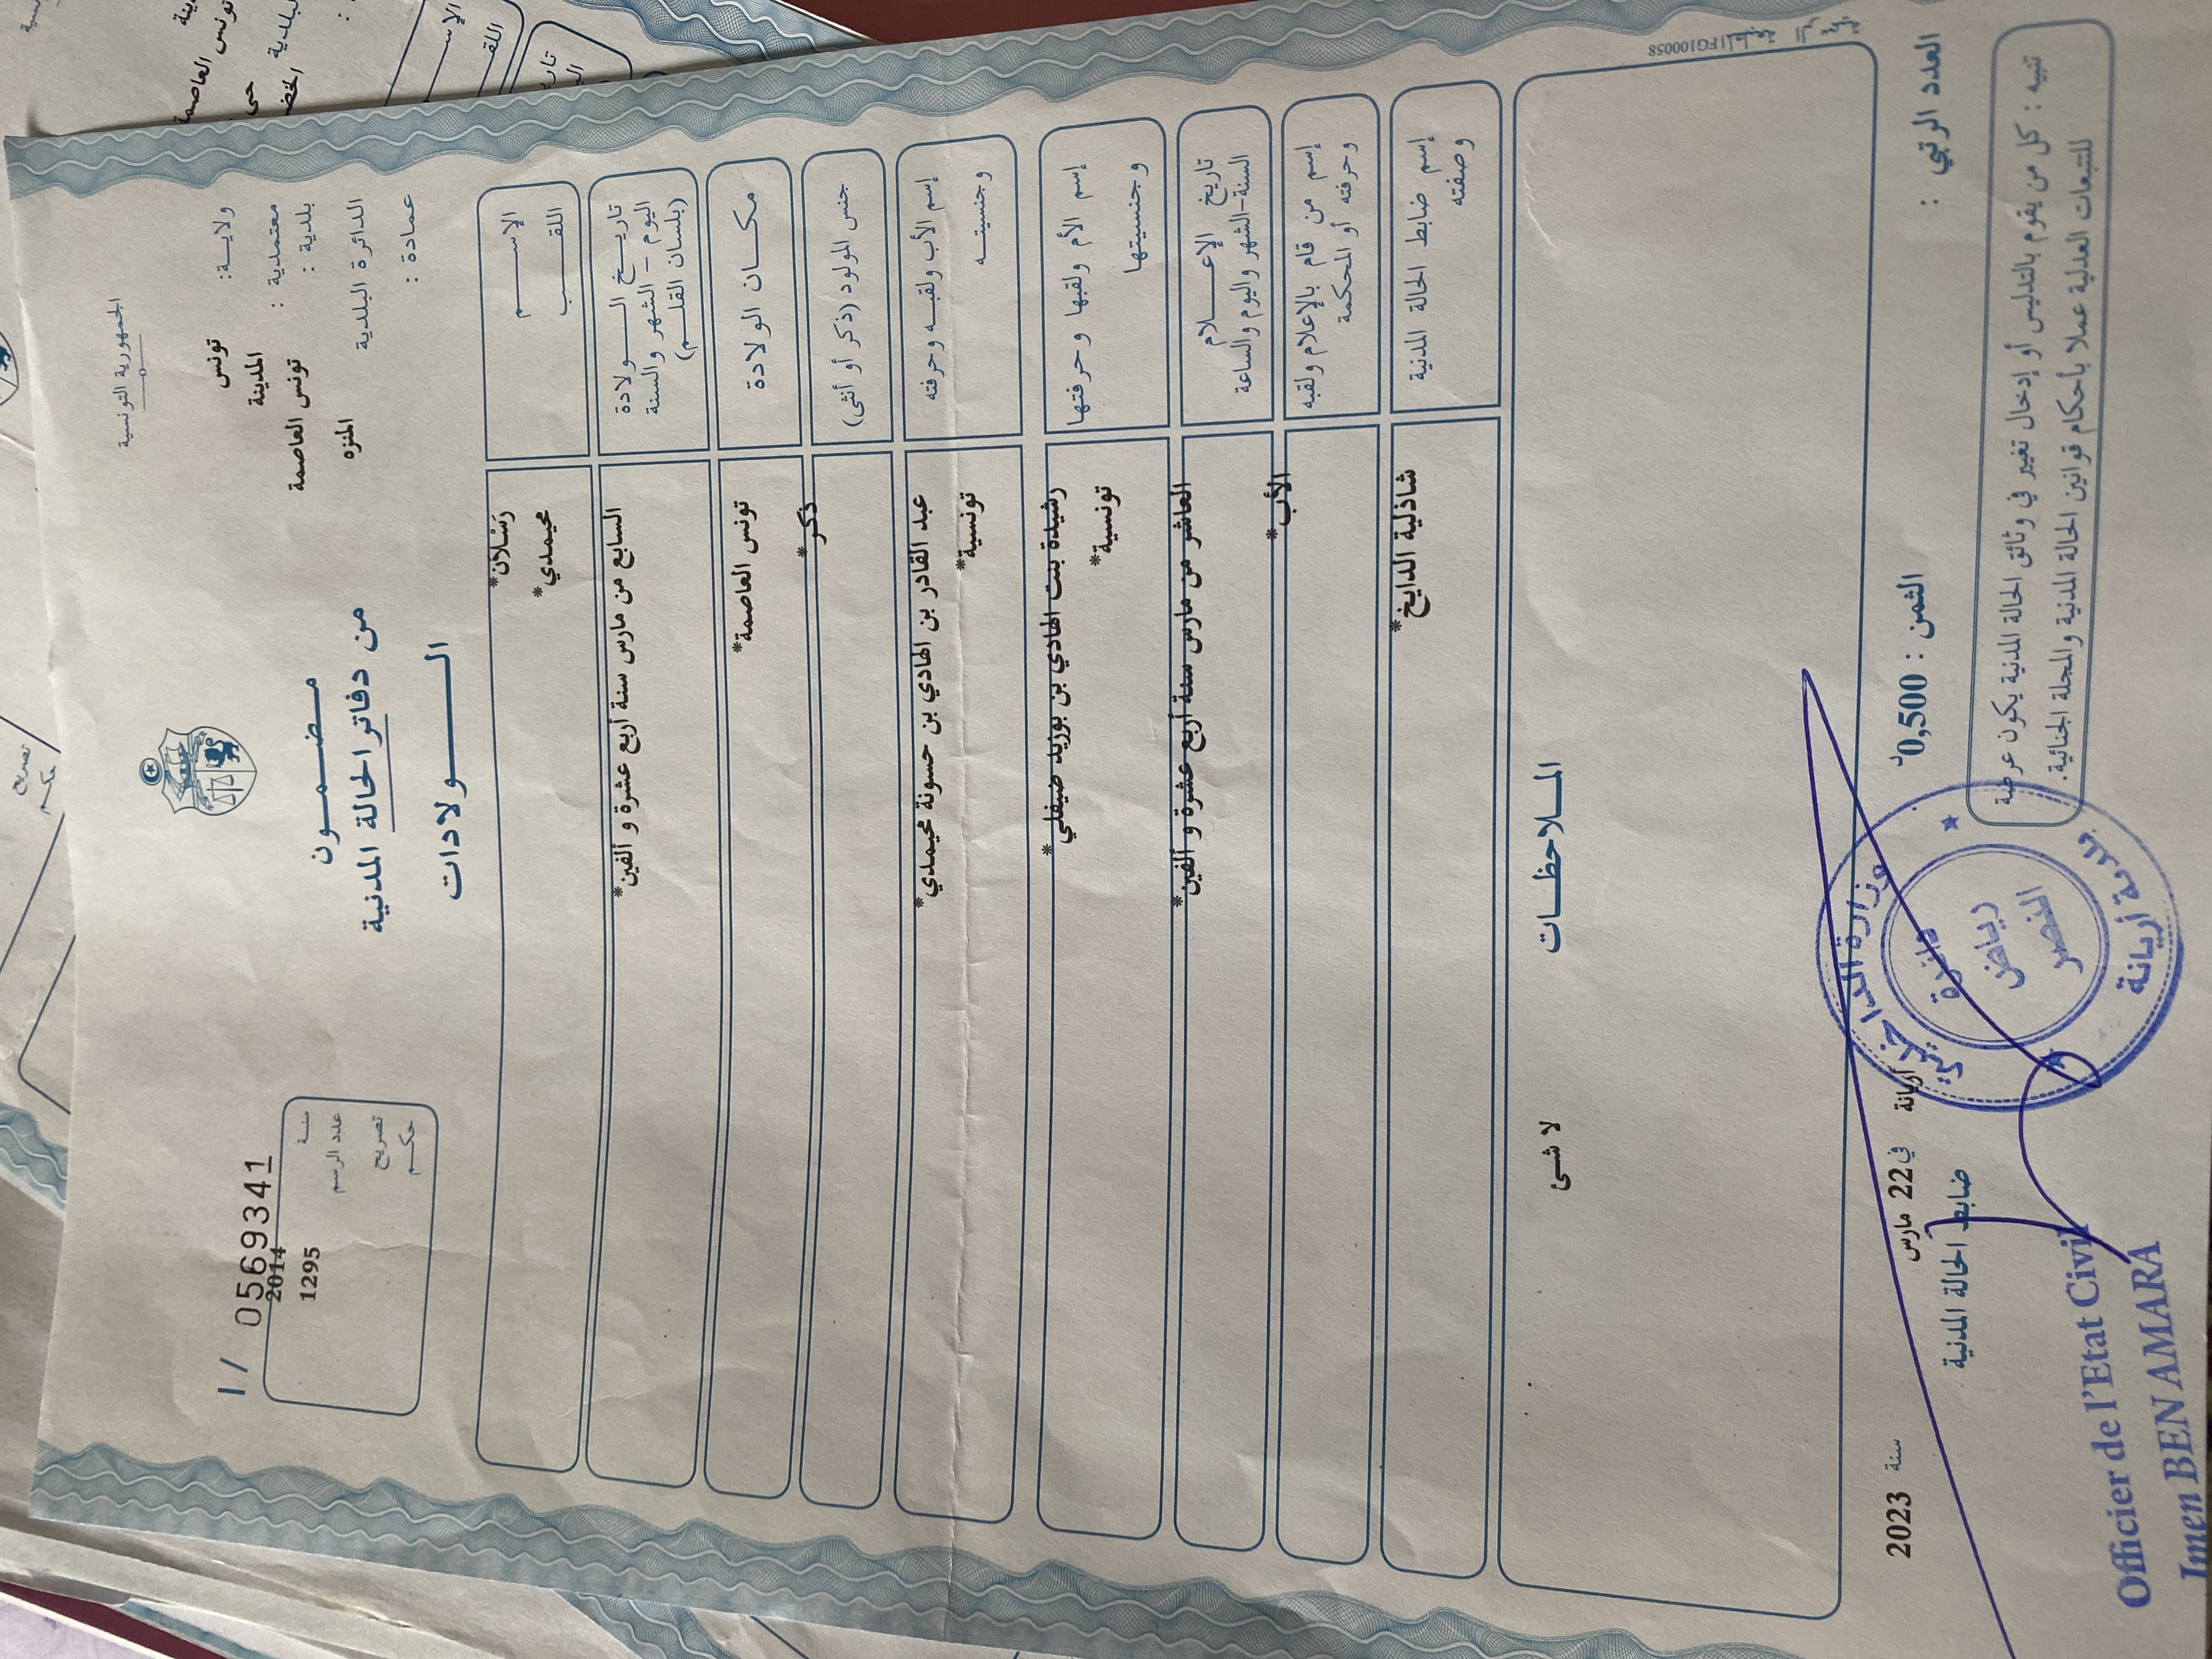 الجمهورية التونسية
ولاية: تونس
معتمدية : المدينة
بلدية : تونس العاصمة
الدائرة البلدية المنزه
عمادة :
مضمون
من دفاتر الحالة المدنية
الولادات
I / 05569341
سنة 2014
عدد الرسم 1295
تصريح
حكم
الإسم رَسْلان*
اللقب محيمدي*
تاريخ الولادة
اليوم - الشهر والسنة
(بلسان القلم)
السابع من مارس سنة أربع عشرة و ألفين*
مكان الولادة تونس العاصمة*
جنس المولود (ذكر أو أنثى) ذكر*
إسم الأب ولقبه وحرفته عبد القادر بن الهادي بن حسونة محيمدي*
وجنسيته تونسية*
إسم الأم ولقبها وحرفتها رشيدة بنت الهادي بن بوزيد ضيفلي*
وجنسيتها تونسية*
تاريخ الإعلام
السنة-الشهر واليوم والساعة
العاشر من مارس سنة أربع عشرة و ألفين*
إسم من قام بالإعلام ولقبه
وحرفته أو المحكمة
الأب*
إسم ضابط الحالة المدنية شاذلية الدايخ*
وصفته
الملاحظات
لا شئ
FG100058
العدد الرتبي :
الثمن : 0,500د
أريانة في 22 مارس سنة 2023
ضابط الحالة المدنية
تنبيه : كل من يقوم بالتدليس أو إدخال تغيير في وثائق الحالة المدنية يكون عرضة
للتتبعات العدلية عملا بأحكام قوانين الحالة المدنية والمجلة الجنائية.
وزارة الداخلية
دائرة
رياض
النصر
بلدية أريانة
Officier de l'Etat Civil
Imen BEN AMARA